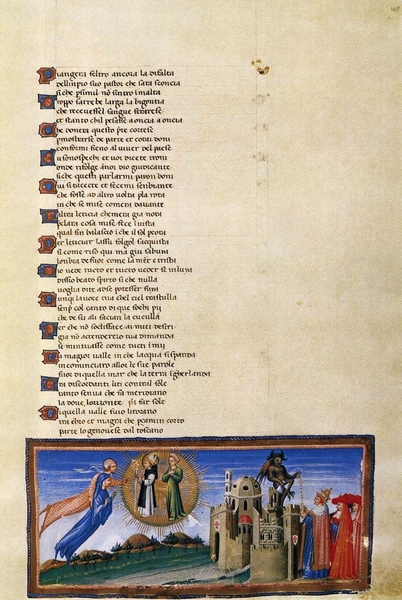 Piangera feltro ancora la difalta
dellimpio suo pastor che sara sconcia
si che psimil nō sentro i malta
Troppo sarebbe larga la bigontia
che receuessel sangue ferarese
et stanco chil pesasse a oncia a oncia
Che donera questo pte cortese
pmostrarse de parte et cotai doni
conformi fieno al uiuer del paese
Su sono spechi et uoi dicete troni
onde rifolge anoi dio giudicante
siche questi parlarmi paron boni
Qui si tacecte et fecemi senbiante
che fosse ad altro uolta pla rota
in che se mise comera dauante
Laltra leticia chemera gia nota
pclara cosa mise fece i uista
qual fin balascio i che il sol pcota
Per leticiar lassu folgor saquista
si come riso qui ma giu sabuia
lonbra de fuor come la mēte e trista
Dio uede tucto et tucto ueder se inluia
dissio beato spirto si che nulla
uoglia di te adse potesser fuia
Dunqua la uoce tua chel ciel trastulla
senp col canto di que fochi pij
che de sei ali facian la cuculla
Per che nō sodisfice ai miei desiri
gia nō actenderei tua dimanda
se mintuasse come tu timij
La magior ualle in che lacqua si spanda
incominciaro allor le sue parole
fuor di quella mar che la terra ighirlanda
Tra discordanti liti contral sole
tanto senua che fa meridiano
la doue lorizonte pria far sole
Di quella ualle fuio litorano
tra ebro et magra che p camin corto
parte lo genouese dal toscano